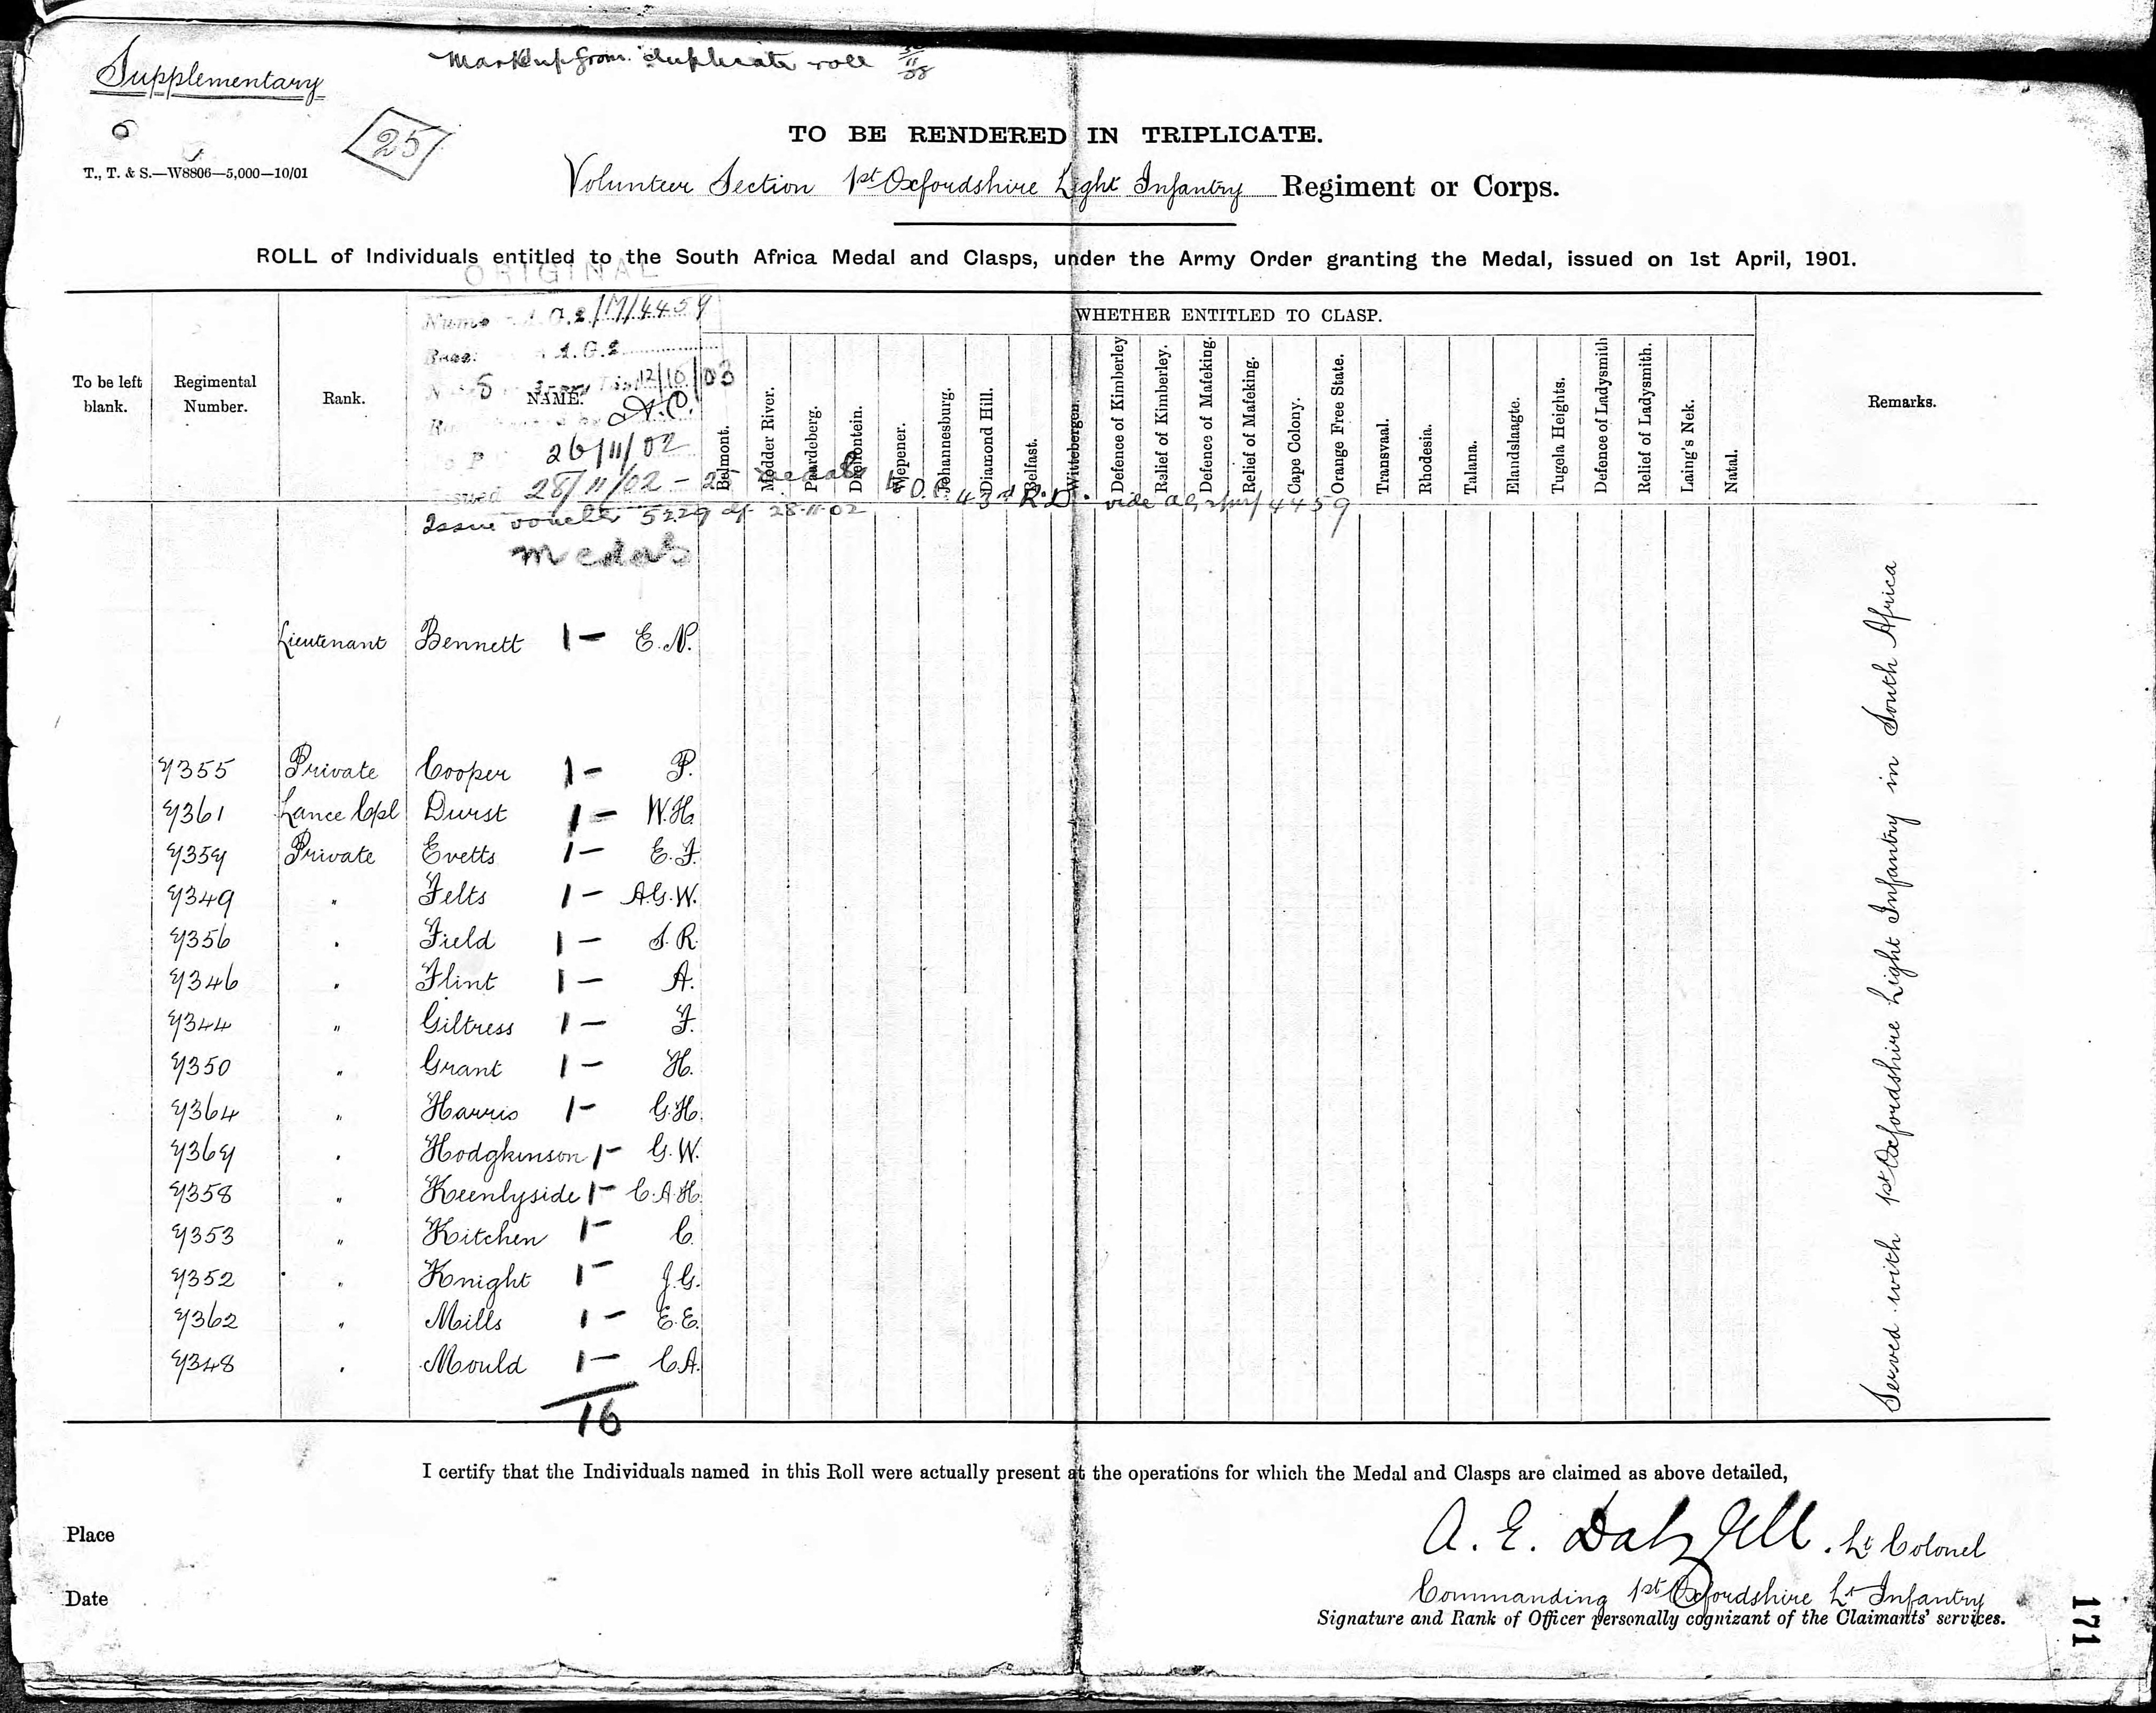 Supplementary
Marked up from duplicate roll
25
T., T. & S.—W8806—5,000—10/01
TO BE RENDERED IN TRIPLICATE.
Volunteer Section 1st Oxfordshire Light Infantry Regiment or Corps.
ROLL of Individuals entitled to the South Africa Medal and Clasps, under the Army Order granting the Medal, issued on 1st April, 1901.
ORIGINAL
A.G.2/M/4459
A.G.2
12/10/03
26/11/02
Issued 28/11/02 – 25 medals to O.C. 43rd R.D. vide
4459
Issue voucher 5229 of 28-11-02
medals
WHETHER ENTITLED TO CLASP.
To be left blank.
Regimental Number.
Rank.
NAME.
Belmont.
Modder River.
Paardeberg.
Driefontein.
Wepener.
Johannesburg.
Diamond Hill.
Belfast.
Wittebergen.
Defence of Kimberley
Relief of Kimberley.
Defence of Mafeking.
Relief of Mafeking.
Cape Colony.
Orange Free State.
Transvaal.
Rhodesia.
Talana.
Elandslaagte.
Tugela Heights.
Defence of Ladysmith
Relief of Ladysmith.
Laing's Nek.
Natal.
Remarks.
Lieutenant Bennett 1 – E. N.
7355 Private Cooper 1 – P.
7361 Lance Cpl Durst 1 – W.H.
7357 Private Evetts 1 – E. F.
7349 " Felts 1 – A.G.W.
7356 " Field 1 – S. R.
7346 " Flint 1 – A.
7344 " Giltress 1 – F.
7350 " Grant 1 – H.
7364 " Harris 1 – G.H.
7367 " Hodgkinson 1 – G.W.
7358 " Keenlyside 1 – C.A.H.
7353 " Kitchen 1 – C.
7352 " Knight 1 – J.G.
7362 " Mills 1 – E.E.
7348 " Mould 1 – C.A.
16
Served with 1st Oxfordshire Light Infantry in South Africa
I certify that the Individuals named in this Roll were actually present at the operations for which the Medal and Clasps are claimed as above detailed,
Place
A. E. Dalzell. Lt Colonel
Date
Commanding 1st Oxfordshire Lt Infantry
Signature and Rank of Officer personally cognizant of the Claimants' services.
171